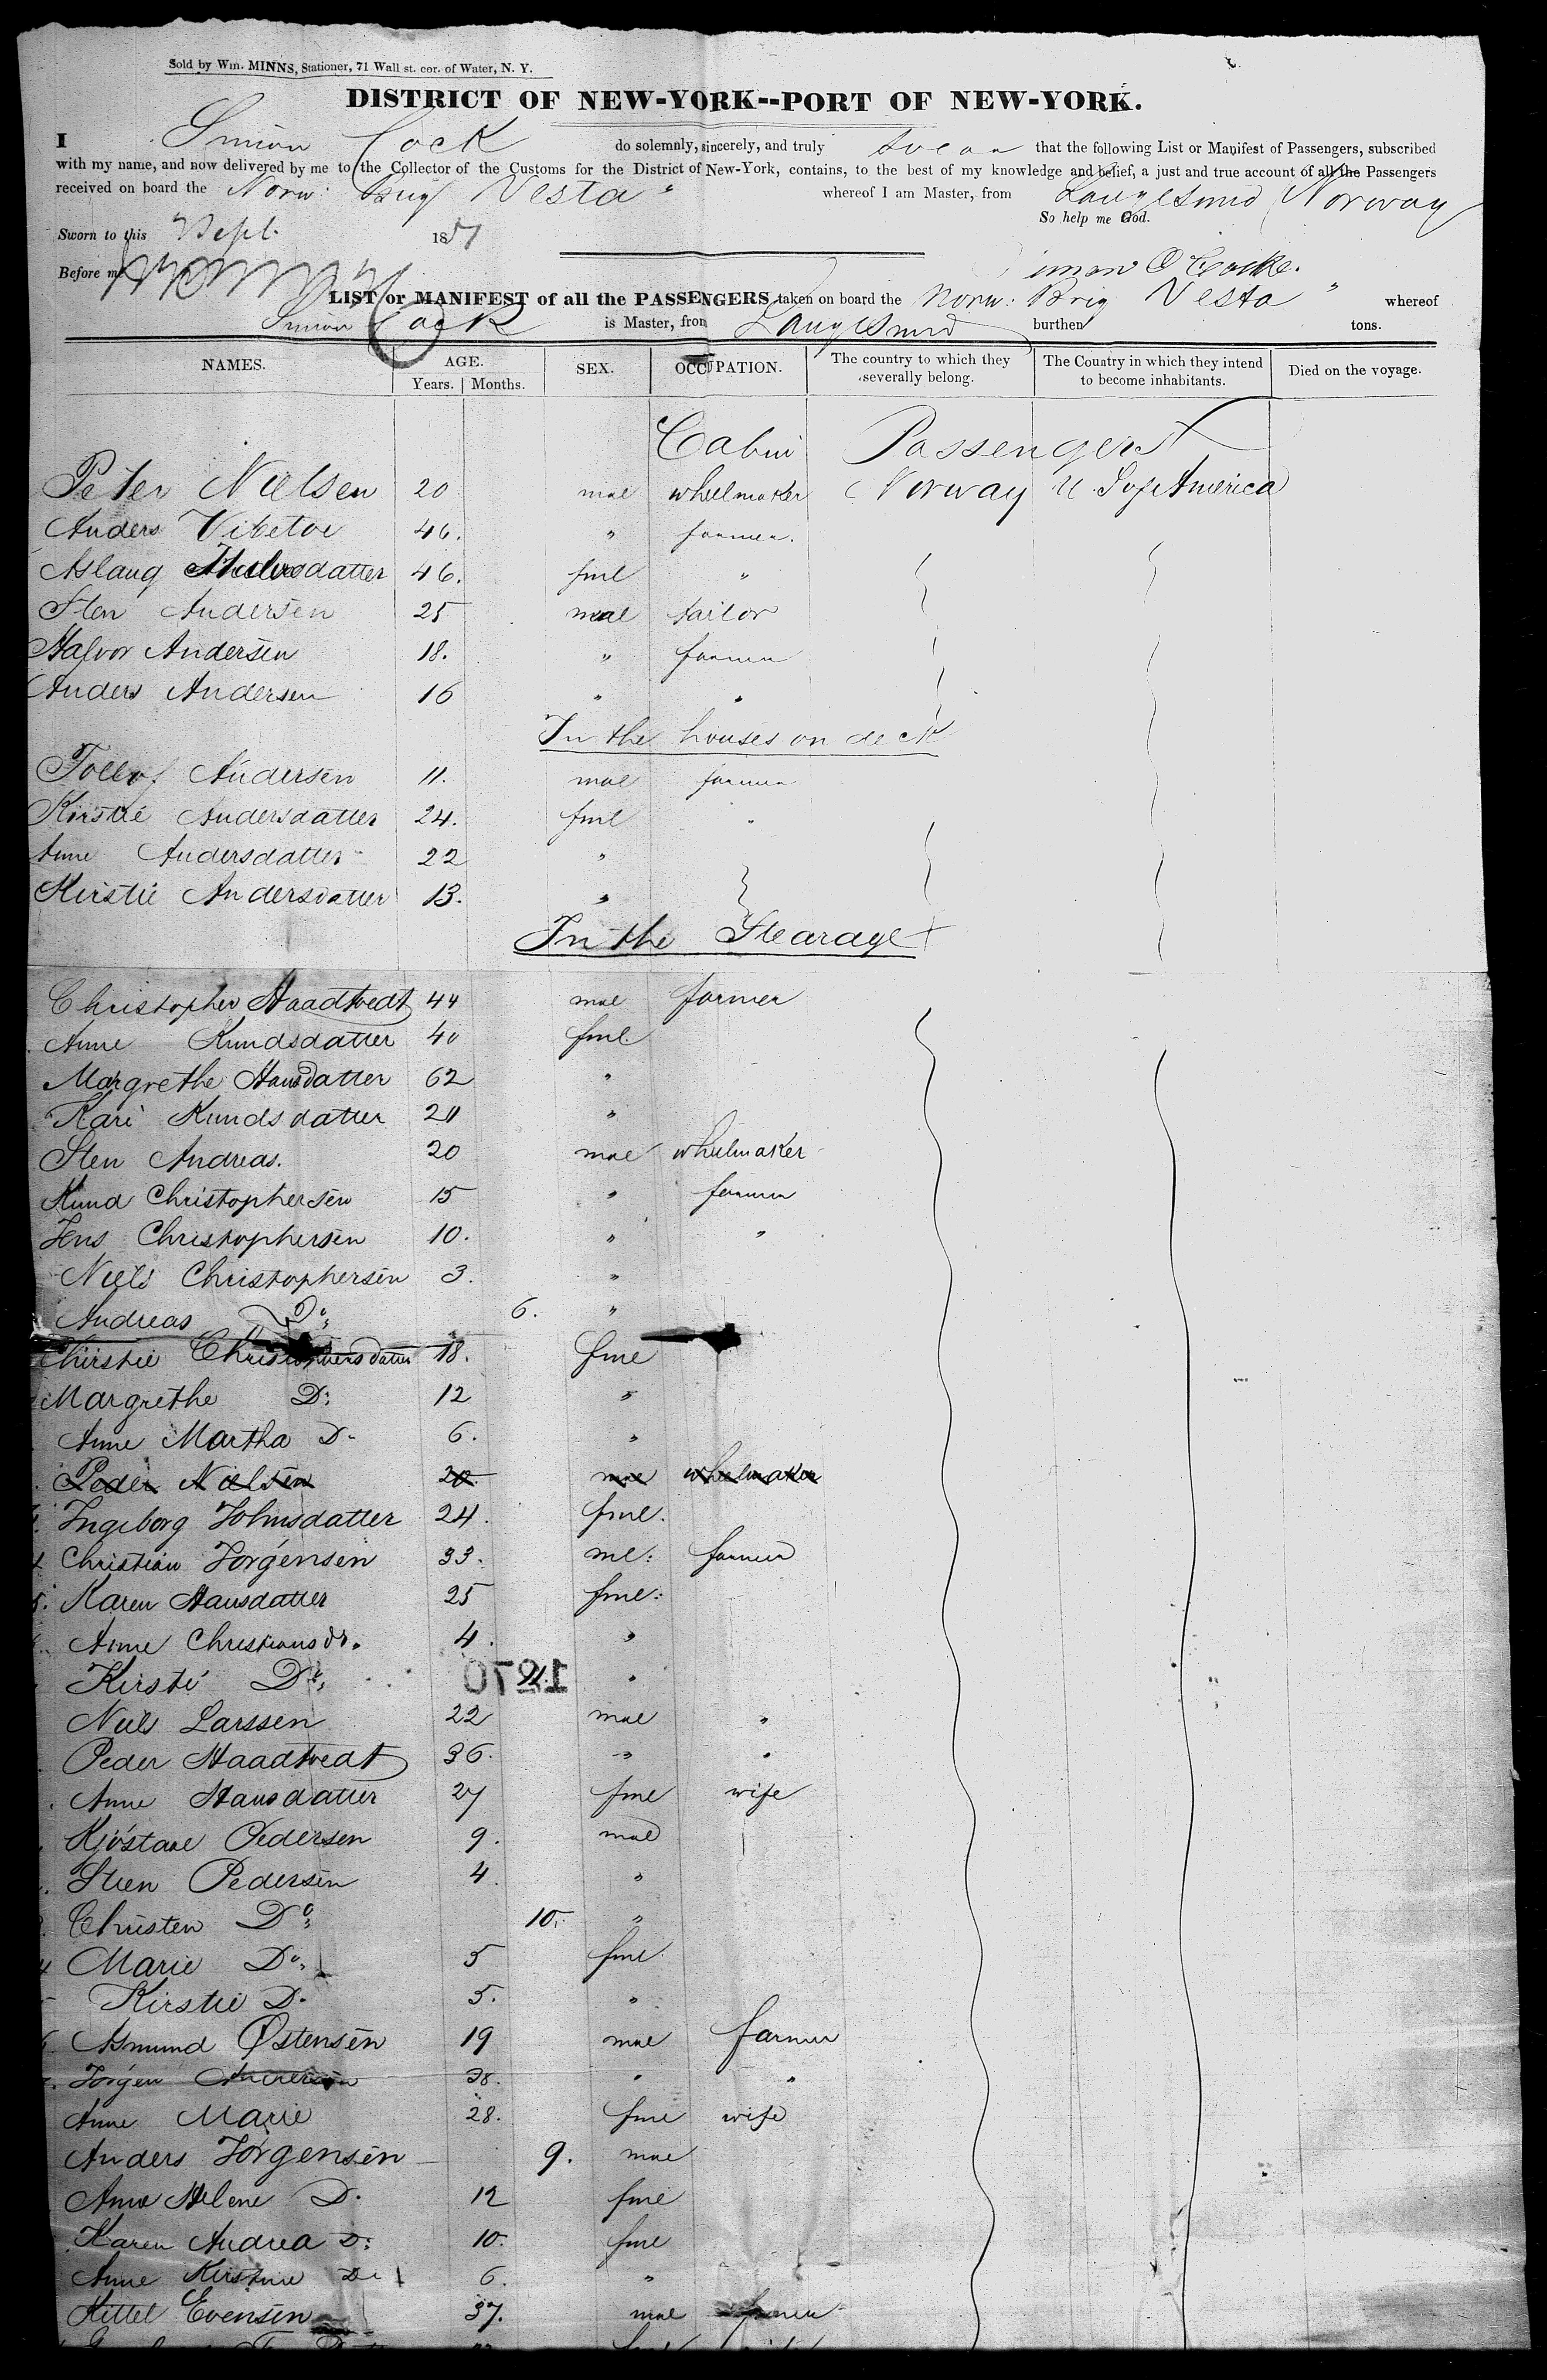 Sold by Wm. MINNS, Stationer, 71 Wall st. cor. of Water, N. Y.
DISTRICT OF NEW-YORK--PORT OF NEW-YORK.
I Simon Cock do solemnly, sincerely, and truly swear that the following List or Manifest of Passengers, subscribed
with my name, and now delivered by me to the Collector of the Customs for the District of New-York, contains, to the best of my knowledge and belief, a just and true account of all the Passengers
received on board the Norw: Brig Vesta whereof I am Master, from Langesund Norway
So help me God.
Sworn to this Sept. 1851
Before me
Simon O Cocke.
LIST or MANIFEST of all the PASSENGERS taken on board the Norw: Brig Vesta " whereof
Simon Cock is Master, from Langesund burthen tons.
NAMES. AGE. Years. Months. SEX. OCCUPATION. The country to which they severally belong. The Country in which they intend to become inhabitants. Died on the voyage.
Cabin Passengers
Peter Nielsen 20 mal wheelmaker Norway U. S. of America
Anders Vibetoe 46. " farmer.
Aslaug datter 46. fml "
Sten Andersen 25 mal tailor
Halvor Andersen 18. " farmer
Anders Andersen 16 " "
In the houses on deck
Tollof Andersen 11. mal farmer
Kirstie Andersdatter 24. fml "
Anne Andersdatter 22 "
Kirstie Andersdatter 13. "
In the Stearage
Christopher Haadtvedt 44 mal farmer
Anne Knudsdatter 40 fml.
Margrethe Hansdatter 62 "
Kari Knudsdatter "
Sten Andreas. 20 mal wheelmaker
Knud Christophersen 15 " farmer
Jens Christophersen 10. " "
Niels Christophersen 3. "
Andreas Do 6. "
Chirstie Christophersdatter 18. fml
Margrethe D: 12 "
Anne Martha D. 6. "
Peder Nielsen 20 mal wheelmaker
Ingeborg Johnsdatter 24. fml.
Christian Jorgensen 33. ml: farmer
5. Karen Hansdatter 25 fml:
Anne Christiansdr. 4. "
Kirsti Do "
Niels Larssen 22 mal "
Peder Haadtvedt 36. " "
Anne Hansdatter 27 fml wife
Kjöstael Pedersen 9. mal
Steen Pedersen 4. "
Christen Do 10. "
4 Marie Do 5 fml.
Kirstie D. 5. "
6 Asmund Østensen 19 mal farmer
Jorgen 38. " "
Anne Marie 28. fml wife
Anders Jörgensen 9. mal
Anne Helene D. 12 fml
Karen Andrea D: 10. fml
Anne Kirstine D. 6. "
Kittel Evensen 37. mal farmer